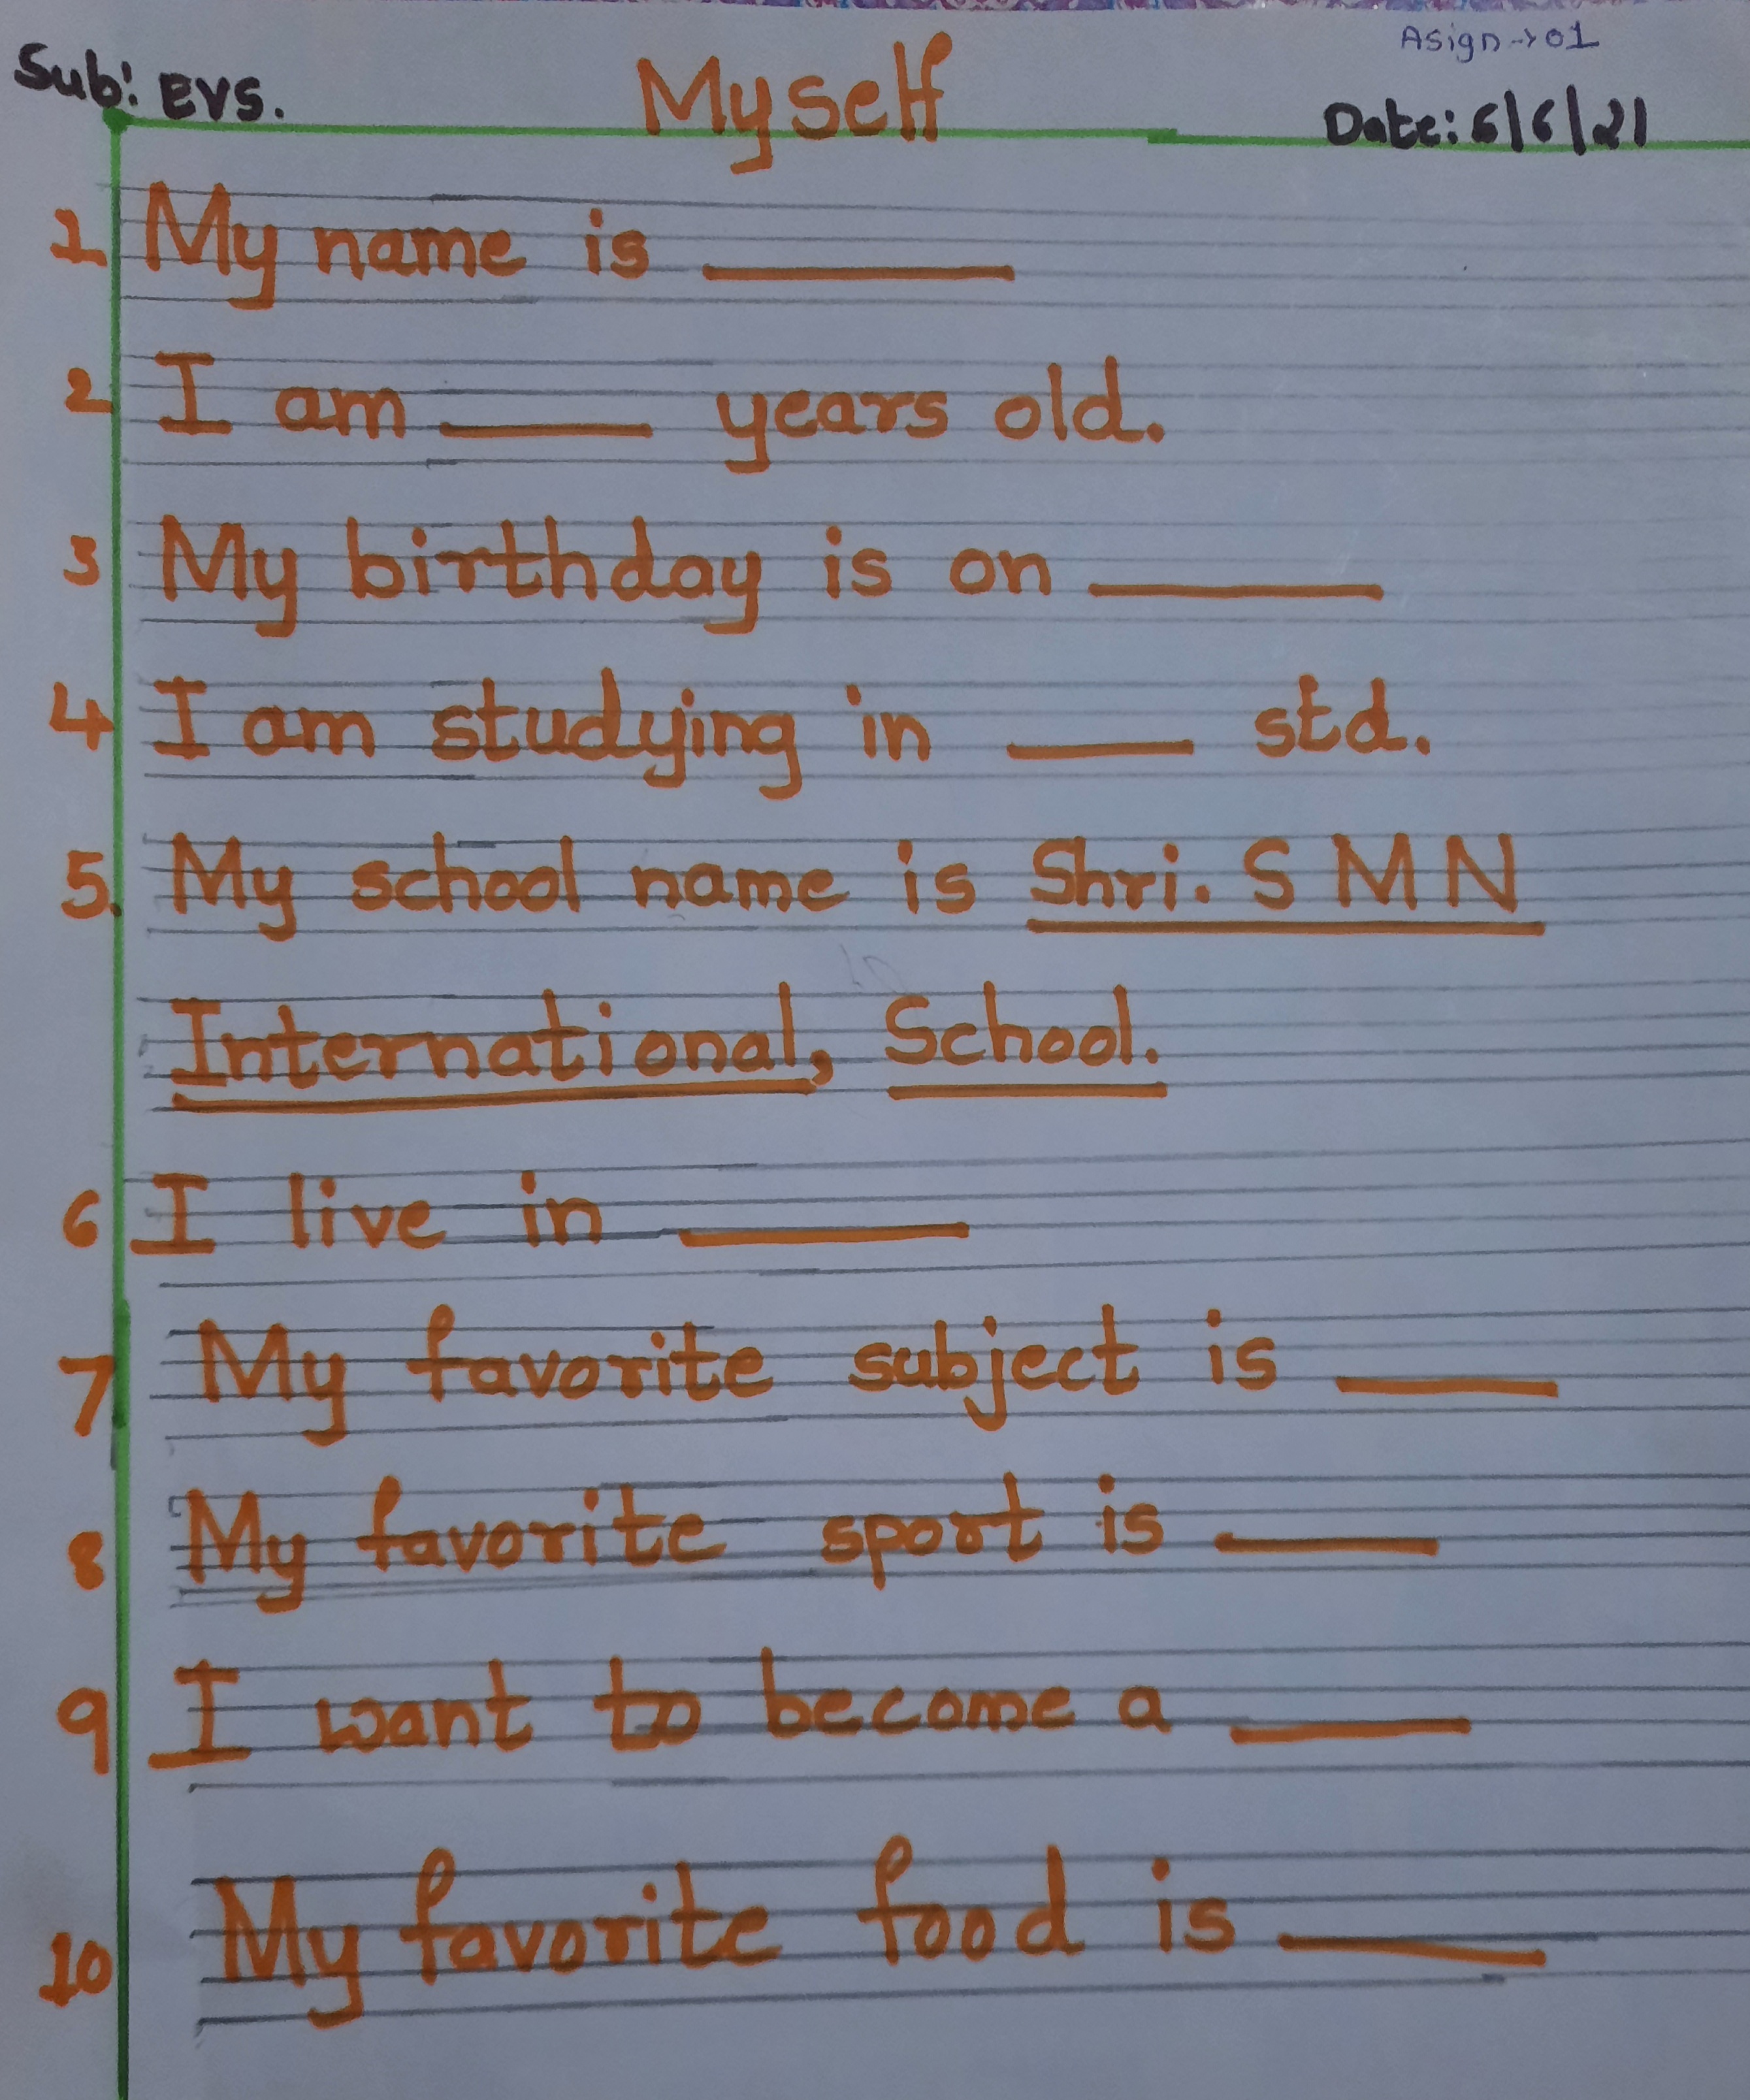 Asign→01
Sub: EVS. Myself Date: 6/6/21
1 My name is ______
2 I am ____ years old.
3 My birthday is on ______
4 I am studying in ____ std.
5. My school name is Shri. S M N
International, School.
6 I live in ______
7 My favorite subject is ____
8 My favorite sport is ____
9 I want to become a ____
10 My favorite food is _____